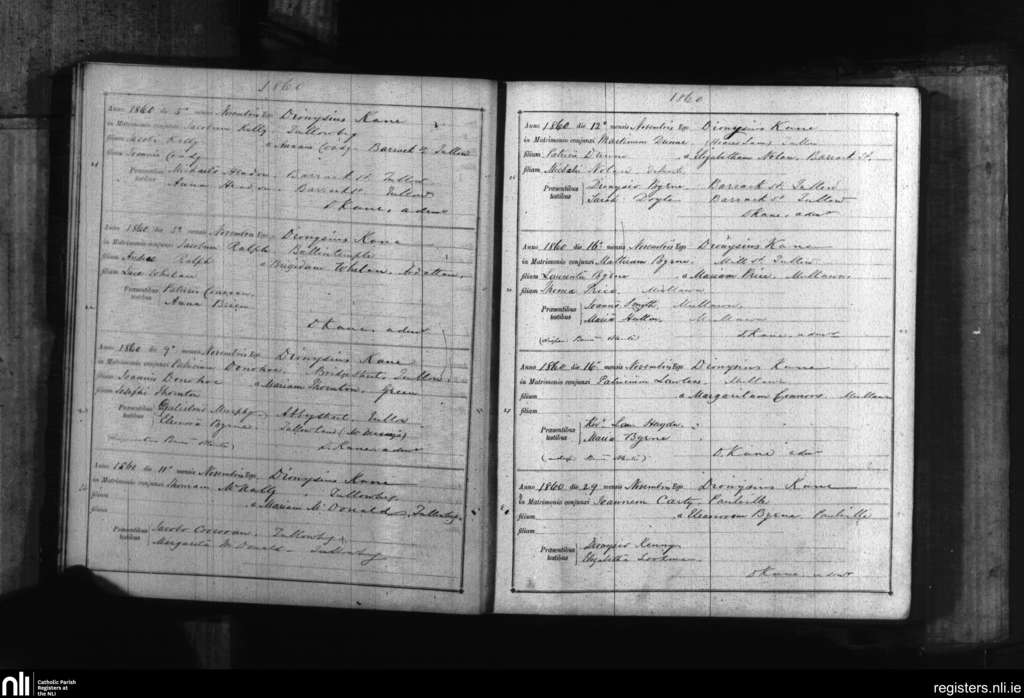 1860
Anno 1860 die 5 mensis Novembris Ego Dionysius Kane
in Matrimonio conjunxi Jacobum Kelly Tullowbeg
filium Jacobi Kelly a Annam Coady Barrack St Tullow
filiam Joannis Coady
Præsentibus Michaele Barrack St Tullow
testibus Anna Barrack St Tullow
D Kane, admr
Anno 1860 die mensis Novembris Ego Dionysius Kane
in Matrimonio conjunxi Jacobum Ralph Ballintemple
filium Andreæ Ralph a Brigidam Whelan
filiam Lucæ Whelan
Præsentibus Patricio
testibus Anna
D Kane, admr
Anno 1860 die 9 mensis Novembris Ego Dionysius Kane
in Matrimonio conjunxi Patricium Donohoe Bridge Street, Tullow
filium Joannis Donohoe a Mariam Thornton Green
filiam Josephi Thornton
Præsentibus Murphy Abbystreet Tullow
testibus Elenora Byrne
D Kane, admr
Anno 1860 die 11 mensis Novembris Ego Dionysius Kane
in Matrimonio conjunxi Thomam McNally Tullowbeg
filium a Mariam McDonald, Tullowbeg
filiam
Præsentibus Jacobo Corcoran Tullowbeg
testibus Margarita McDonald Tullowbeg
1860
Anno 1860 die 12 mensis Novembris Ego Dionysius Kane
in Matrimonio conjunxi Martinum Dunne Tullow
filium Patricii Dunne a Elizabetham Nolan, Barrack St.
filiam Michælis Nolan
Præsentibus Dionysio Byrne Barrack St. Tullow
testibus Sarah Doyle Barrack St Tullow
D Kane, admr
Anno 1860 die 16 mensis Novembris Ego Dionysius Kane
in Matrimonio conjunxi Matheum Byrne, Mill St. Tullow
filium Laurentii Byrne a Mariam Price, Mullawn
filiam Thomæ Price Mullawn
Præsentibus Joanne Smyth, Mullawn
testibus Maria Hutton, Mullawn
D Kane, admr
Anno 1860 die 16 mensis Novembris Ego Dionysius Kane
in Matrimonio conjunxi Patricium Lawless, Mullawn
filium a Margaritam Connors, Mullawn
filiam
Præsentibus Rev. Hayden
testibus Maria Byrne
D. Kane admr
Anno 1860 die 29 mensis Novembris Ego Dionysius Kane
in Matrimonio conjunxi Joannem Carty, Paulville
filium a Eleanoram Byrne Paulville
filiam
Præsentibus Dionysio Kenny
testibus Elizabetha
D Kane, admr
nli
Catholic Parish
Registers at
the NLI
registers.nli.ie